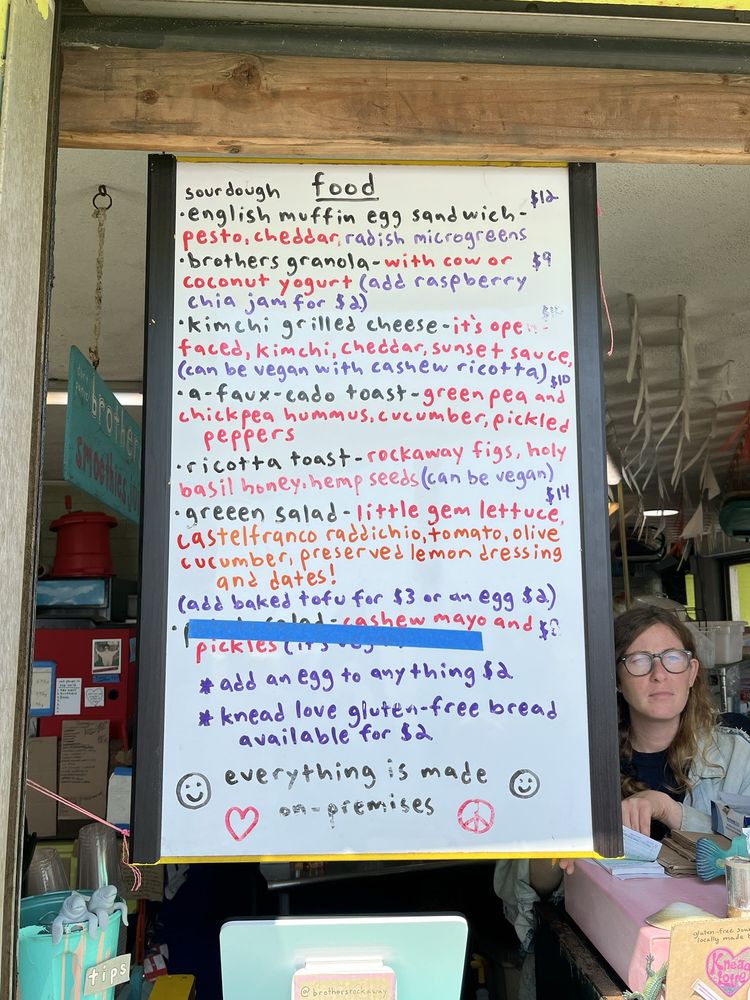 food
sourdough $12
·english muffin egg sandwich-
pesto, cheddar, radish microgreens
·brothers granola-with cow or $9
coconut yogurt (add raspberry
chia jam for $2)
·kimchi grilled cheese-it's open-
faced, kimchi, cheddar, sunset sauce,
(can be vegan with cashew ricotta) $10
·a-faux-cado toast-green pea and
chickpea hummus, cucumber, pickled
peppers
·ricotta toast-rockaway figs, holy
basil honey, hemp seeds (can be vegan)
$14
·greeen salad-little gem lettuce,
castelfranco raddichio, tomato, olive
cucumber, preserved lemon dressing
and dates!
(add baked tofu for $3 or an egg $2)
salad-cashew mayo and
pickles (it's
* add an egg to anything $2
* knead love gluten-free bread
available for $2
everything is made
on-premises
brother
smoothies
tips
@brothersrockaway
gluten-free
locally made
Knead
Love